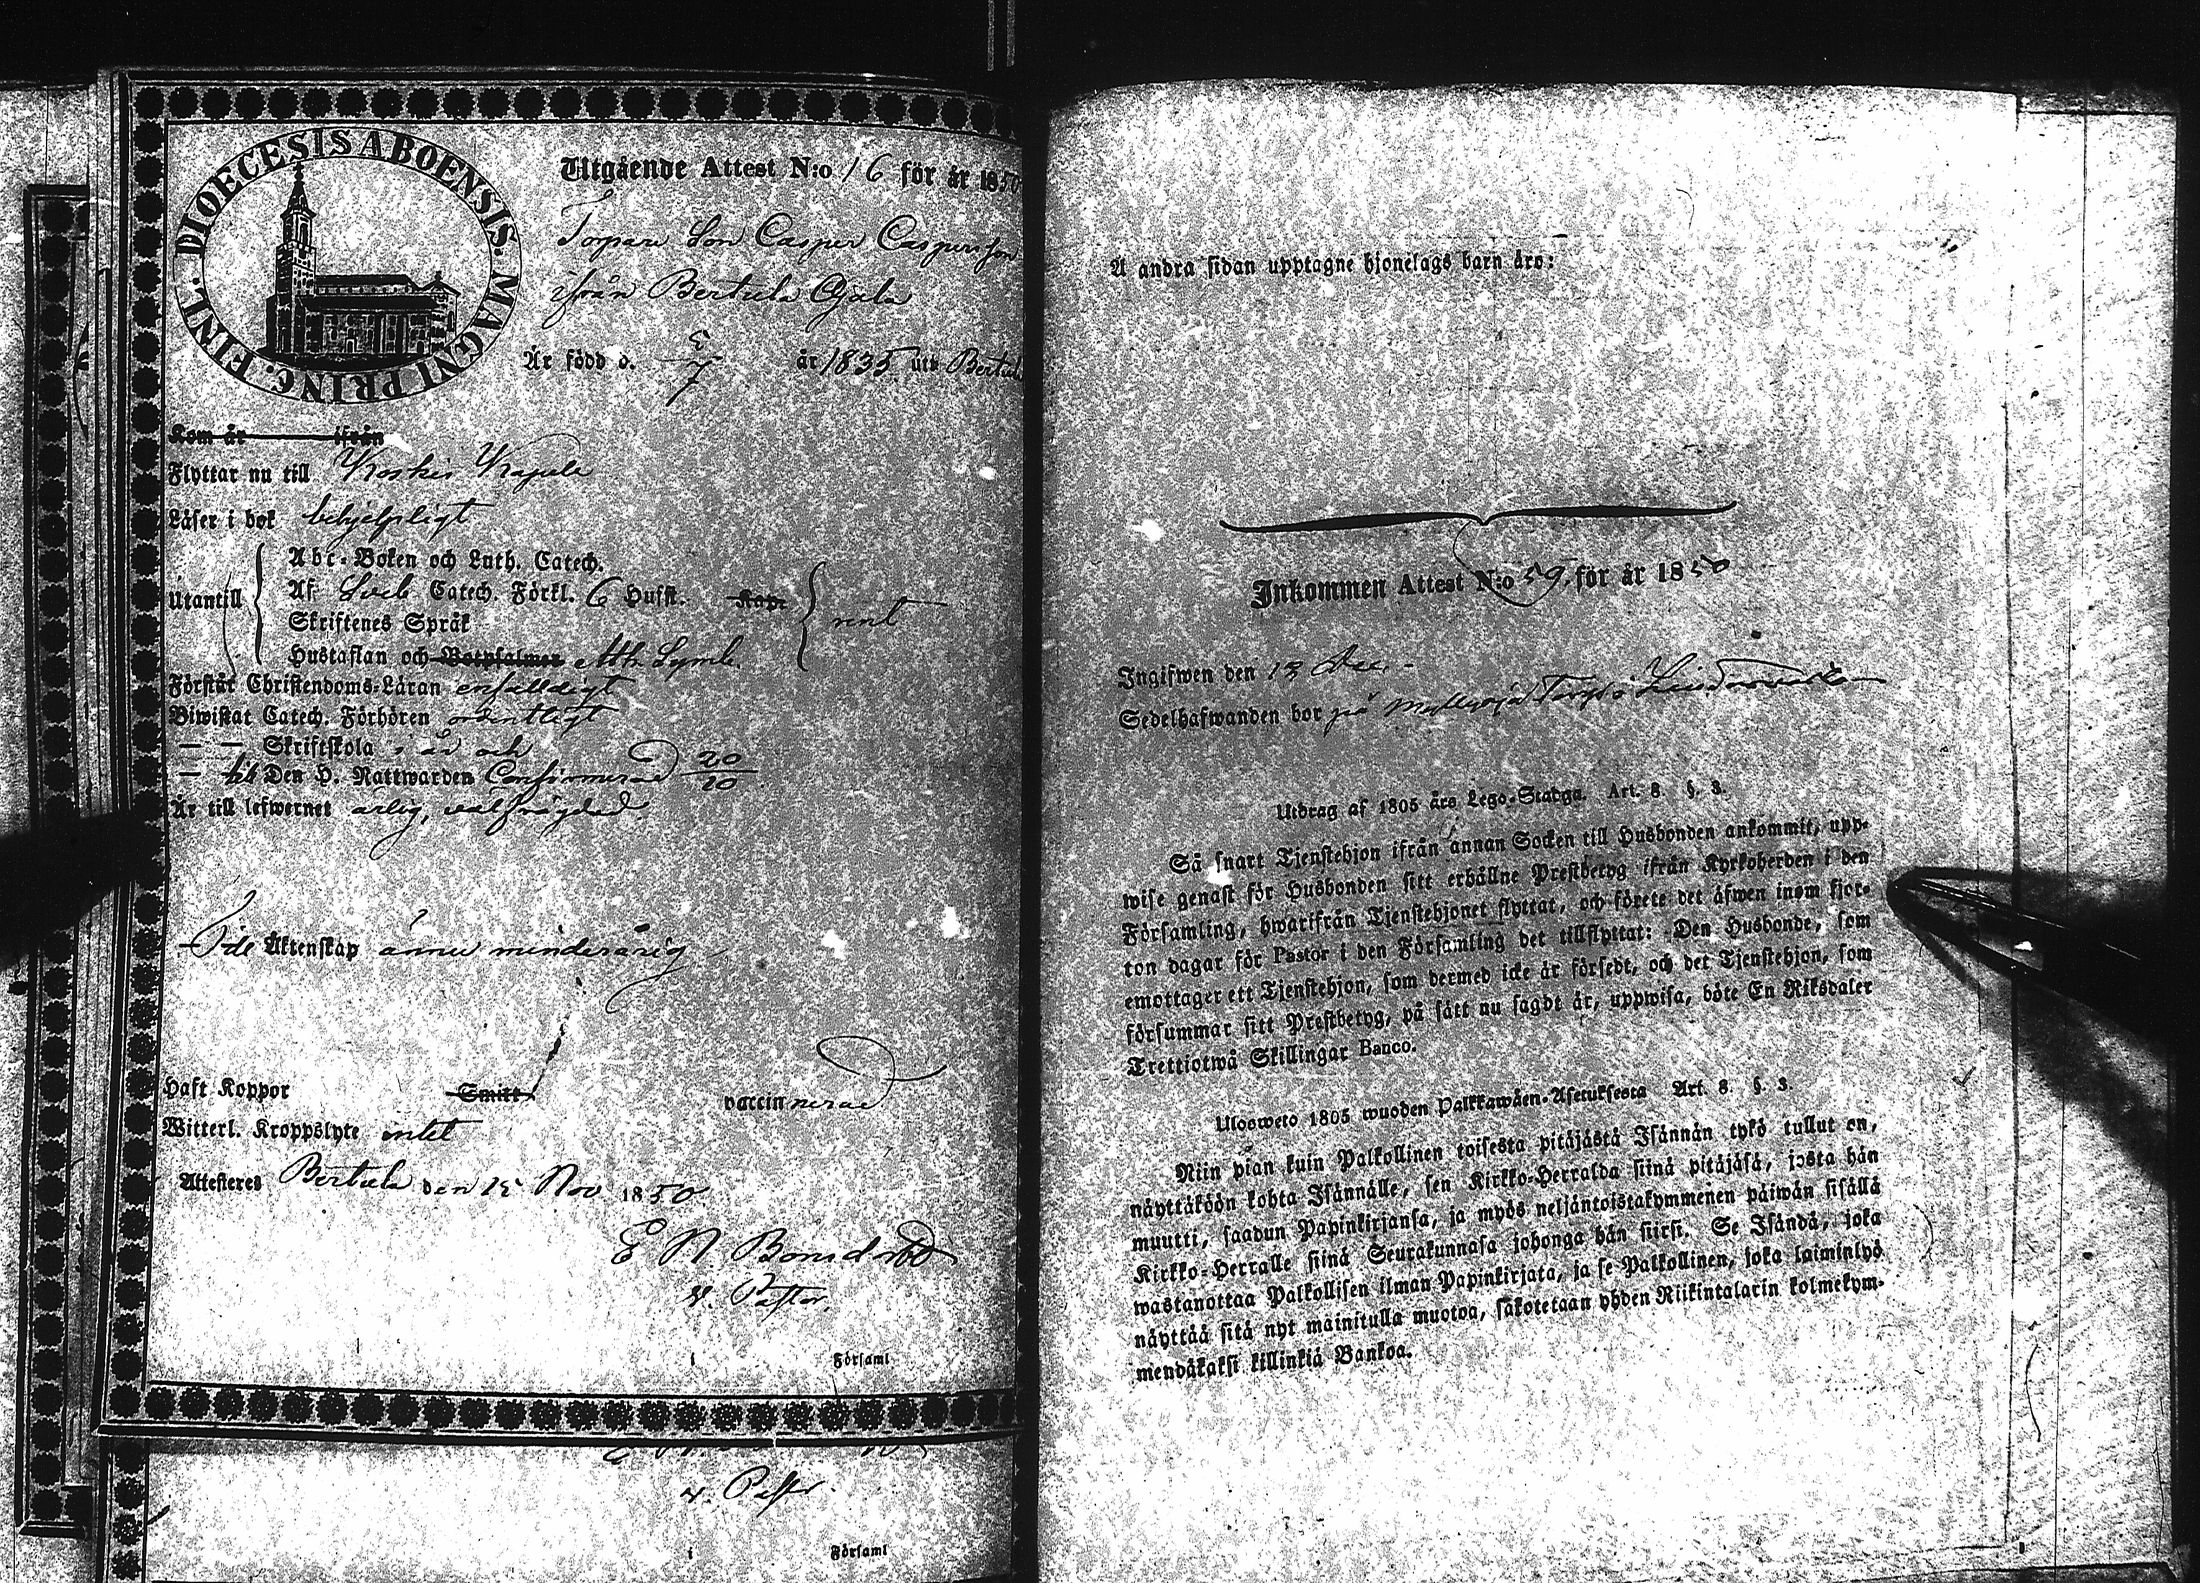 DIOECESIS ABOENSIS. MAGNI PRINC. FINL.
Utgående Attest N:o 16 för år 1850
Torpare Son Casper Caspersson
ifrån Bertula
Är född d. 5/7 år 1835 uti Bertula
Kom år ifrån
Flyttar nu till Koskis Kapell
Läser i bok behjelpligt
Abc-Boken och Luth. Catech.
Utantill Af Sveb Catech. Förkl. 6 Hufst. Kap. rent
Skriftenes Språk
Hustaflan och Botpsalmer Ath. Symb.
Förstår Christendoms-Läran enfalldigt
Biwistat Catech. Förhören ordentligt
— — Skriftskola i år och
— Den H. Nattwarden Confirmerad 20/10
Är till lefwernet ärlig, välfrägdad
Till Äktenskap ännu minderårig
Haft Koppor Smitt vaccinnerad
Witterl. Kroppslyte intet
Attesteres Bertula den 15 Nov 1850
E N Bonsdorff
v. Pastor.
i Församl
v. Pastor.
i Församl
Å andra sidan upptagne hjonelags barn äro:
Inkommen Attest N:o 59. för år 1850
Ingifwen den 12 Dec.
Sedelhafwanden bor på Torp
Utdrag af 1805 års Lego-Stadga. Art. 8. §. 3.
Så snart Tjenstehjon ifrån annan Socken till Husbonden ankommit, upp-
wise genast för Husbonden sitt erhållne Prestbetyg ifrån Kyrkoherden i den
Församling, hwarifrån Tjenstehjonet flyttat, och förete det äfwen inom fjor-
ton dagar för Pastor i den Församling det tillflyttat: Den Husbonde, som
emottager ett Tjenstehjon, som dermed icke är försedt, och det Tjenstehjon, som
försummar sitt Prestbetyg, på sätt nu sagdt är, uppwisa, böte En Riksdaler
Trettiotwå Skillingar Banco.
Ulosweto 1805 wuoden Palkkawäen-Asetuksesta Art. 8. §. 3.
Niin pian kuin Palkollinen toisesta pitäjästä Isännän tykö tullut on,
näyttäköön kohta Isännälle, sen Kirkko-Herralda siinä pitäjäsä, josta hän
muutti, saadun Papinkirjansa, ja myös neljäntoistakymmenen päiwän sisällä
Kirkko-Herralle siinä Seurakunnasa johonga hän siirsi. Se Isändä, joka
wastanottaa Palkollisen ilman Papinkirjata, ja se Palkollinen, joka laiminlyö
näyttää sitä nyt mainitulla muotoa, sakotetaan yhden Riikintalarin kolmekym-
mendäkaksi killinkiä Bankoa.